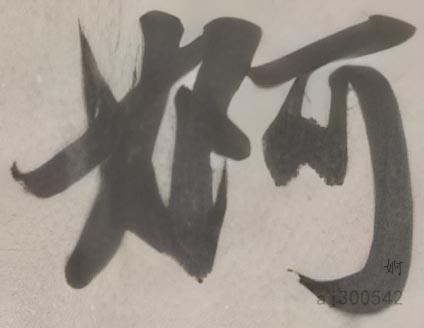 婀
婀
aj300542